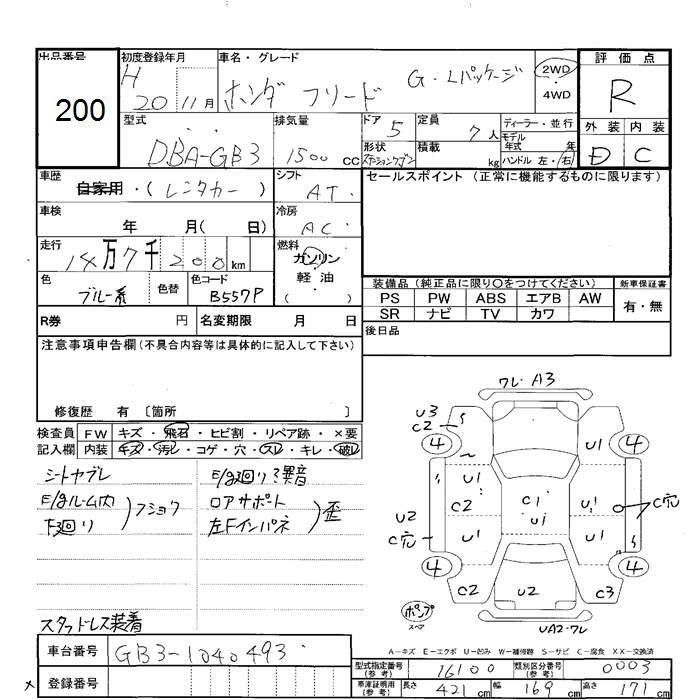 出品番号
200
初度登録年月
H 20 11月
車名・グレード
ホンダ フリード G・Lパッケージ
2WD
4WD
評価点
R
外装 内装
D C
型式
DBA-GB3
排気量
1500 cc
ドア 5
形状
ステーションワゴン
定員
7人
積載
kg
ディーラー・並行
モデル
年式 年
ハンドル 左・右
車歴
自家用・(レンタカー)
シフト
AT
セールスポイント (正常に機能するものに限ります)
車検
年 月( 日)
冷房
AC
走行
14万7千200km
燃料
ガソリン
軽油
( )
色
ブルー系
色替
色コード
B557P
装備品 (純正品に限り〇をつけてください)
新車保証書
PS PW ABS エアB AW
SR ナビ TV カワ
有・無
R券 円
名変期限 月 日
後日品
注意事項申告欄(不具合内容等は具体的に記入して下さい)
修復歴 有 〔箇所 〕
検査員
記入欄
FW キズ・飛石・ヒビ割・リペア跡・×要
内装 キズ・汚レ・コゲ・穴・スレ・キレ・破レ
シートヤブレ
E/gルーム内
下廻り
フショク
E/g廻り異音
ロアサポート
左Fインパネ
歪
スタッドレス装着
ワレ・A3
U3
C2
4
4
U1
U1
C2
C1
U1
U1
C穴
U2
C穴
U1
U1
4
4
C2
U2
C3
パンプ
スペア
UA2・ワレ
A－キズ E－エクボ U－凹み W－補修跡 S－サビ C－腐食 XX－交換済
車台番号
GB3-1040493
登録番号
×
型式指定番号
(参考)
16100
類別区分番号
(参考)
0003
車庫証明用
(参考)
長さ 421cm 幅 169cm 高さ 171cm